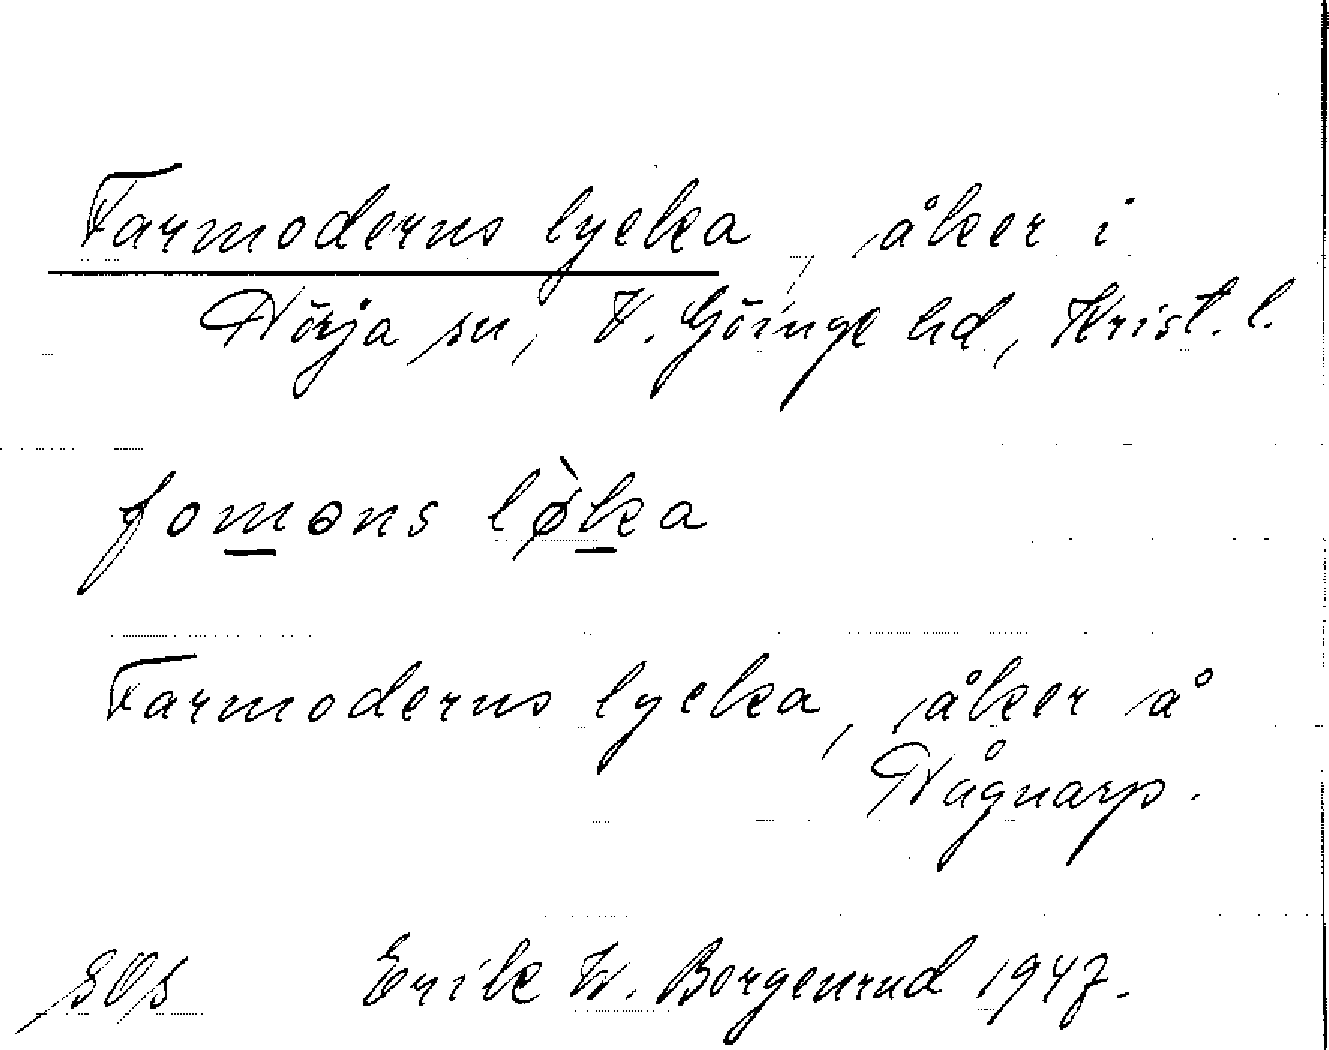 Farmoderns lycka, åker i
Nörja sn, V. Göinge hd, Krist. l.
fomans løka
Farmoderns lycka, åker å
Någnarp.
Erik W. Borgenrud 1947.